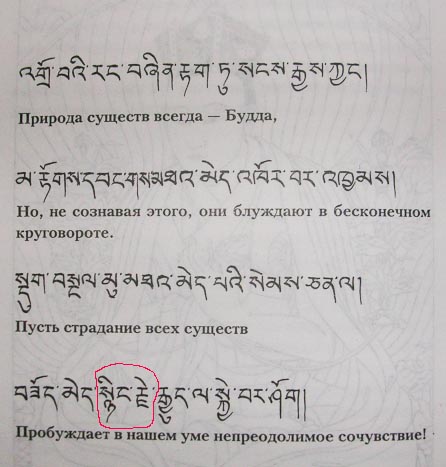 འགྲོ་བའི་རང་བཞིན་རྟག་ཏུ་སངས་རྒྱས་ཀྱང་།
Природа существ всегда — Будда,
མ་རྟོགས་དབང་གིས་མཐའ་མེད་འཁོར་བར་འཁྱམས།
Но, не сознавая этого, они блуждают в бесконечном
круговороте.
སྡུག་བསྔལ་མུ་མཐའ་མེད་པའི་སེམས་ཅན་ལ།
Пусть страдание всех существ
བཟོད་མེད་སྙིང་རྗེ་རྒྱུད་ལ་སྐྱེ་བར་ཤོག།
Пробуждает в нашем уме непреодолимое сочувствие!